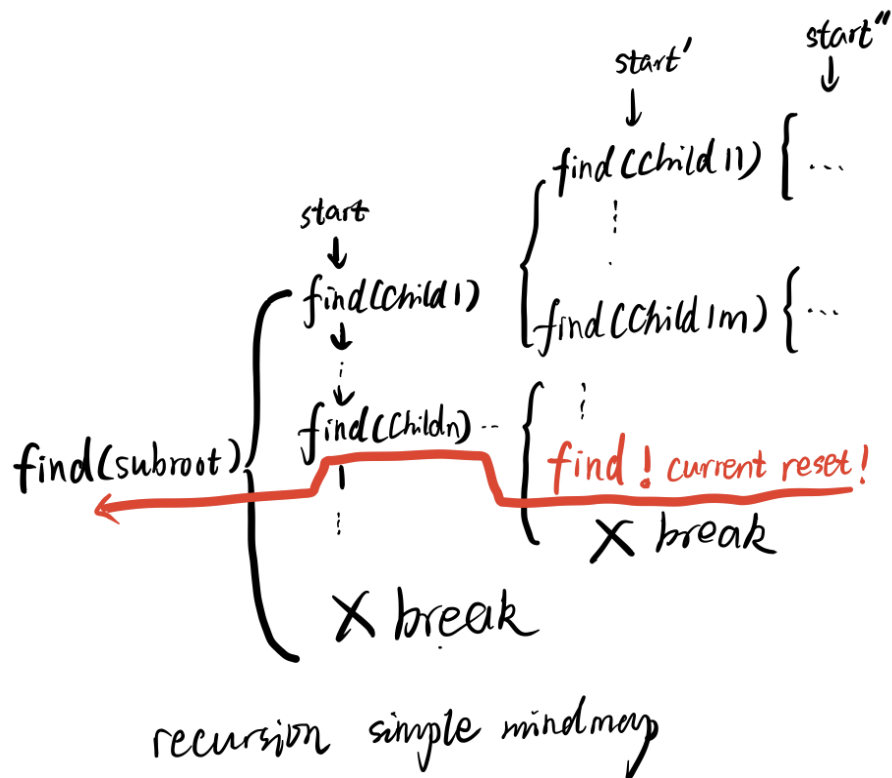 start''
start'
find(Child11) { ...
start
find(Child1)
find(Child1m) { ...
find(Childn) ...
find(subroot)
find! current reset!
X break
X break
recursion simple mindmap